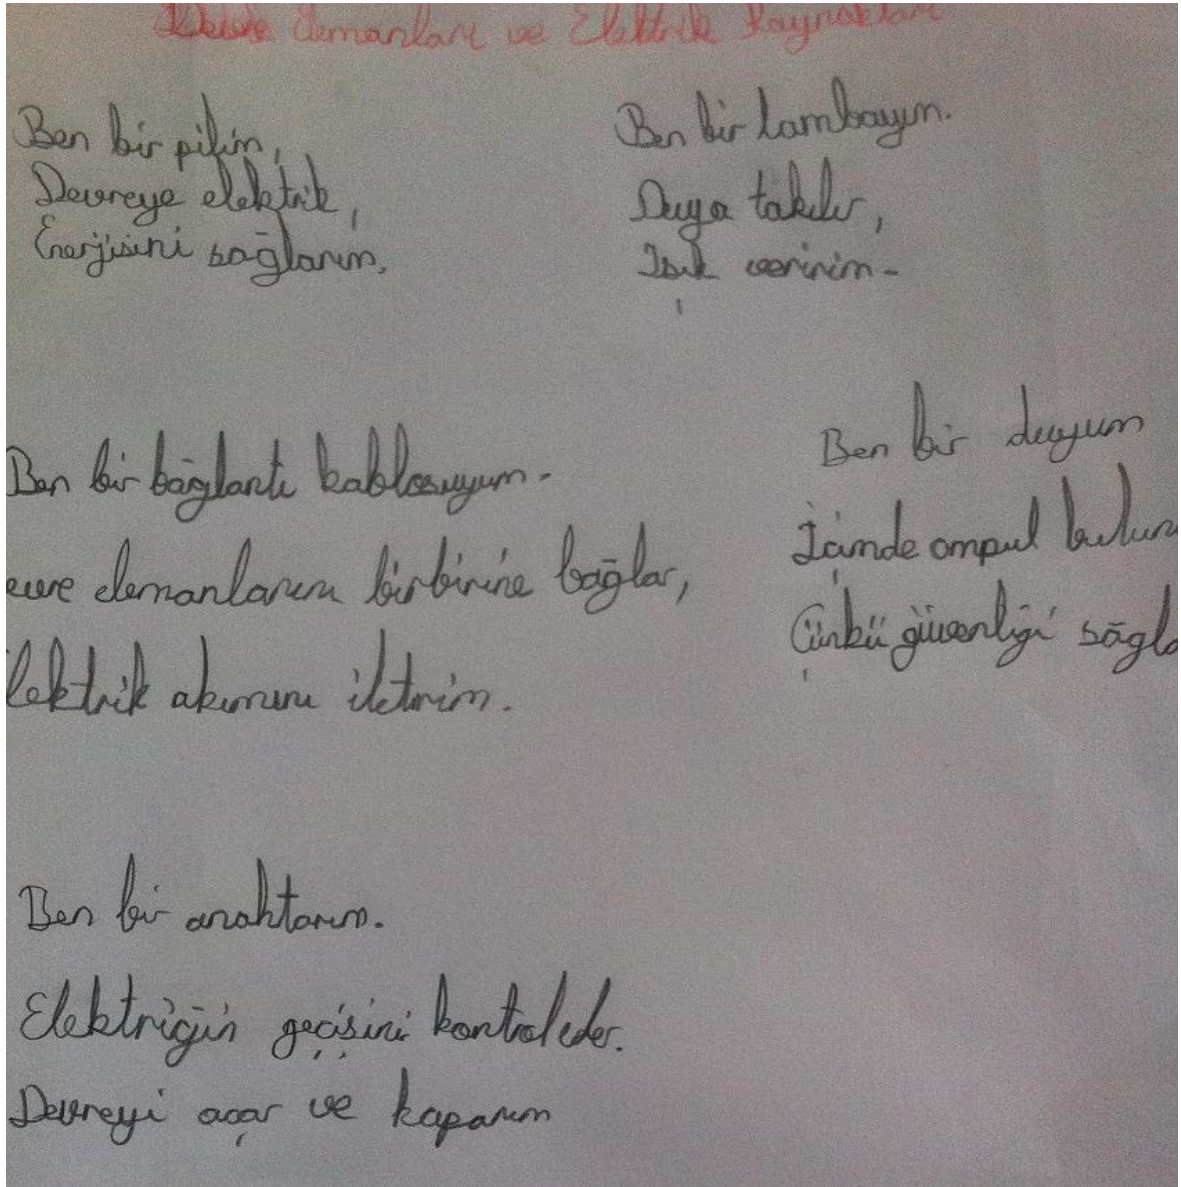 Devre Elemanları ve Elektrik Kaynakları
Ben bir pilim,
Devreye elektrik,
Enerjisini sağlarım.
Ben bir lambayım.
Duya takılır,
Işık veririm-
Ben bir bağlantı kablosuyum-
elemanlarını birbirine bağlar,
akımını iletirim.
Ben bir duyum
İçimde ampul
Çünkü güvenliği
Ben bir anahtarım.
Elektriğin geçişini kontrol eder.
Devreyi açar ve kaparım